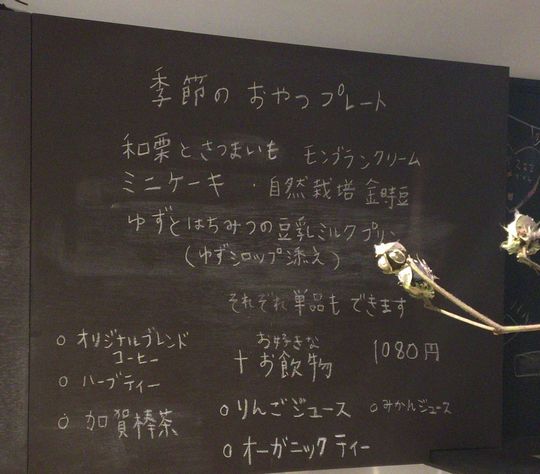 季節の おやつプレート
和栗とさつまいも モンブランクリーム
ミニケーキ ・自然栽培 金時豆
ゆずとはちみつの豆乳ミルクプリン
(ゆずシロップ添え)
それぞれ単品もできます
お好きな
+お飲物 1080円
○ オリジナルブレンド
コーヒー
○ ハーブティー
○ 加賀棒茶
○ りんごジュース ○ みかんジュース
○ オーガニックティー